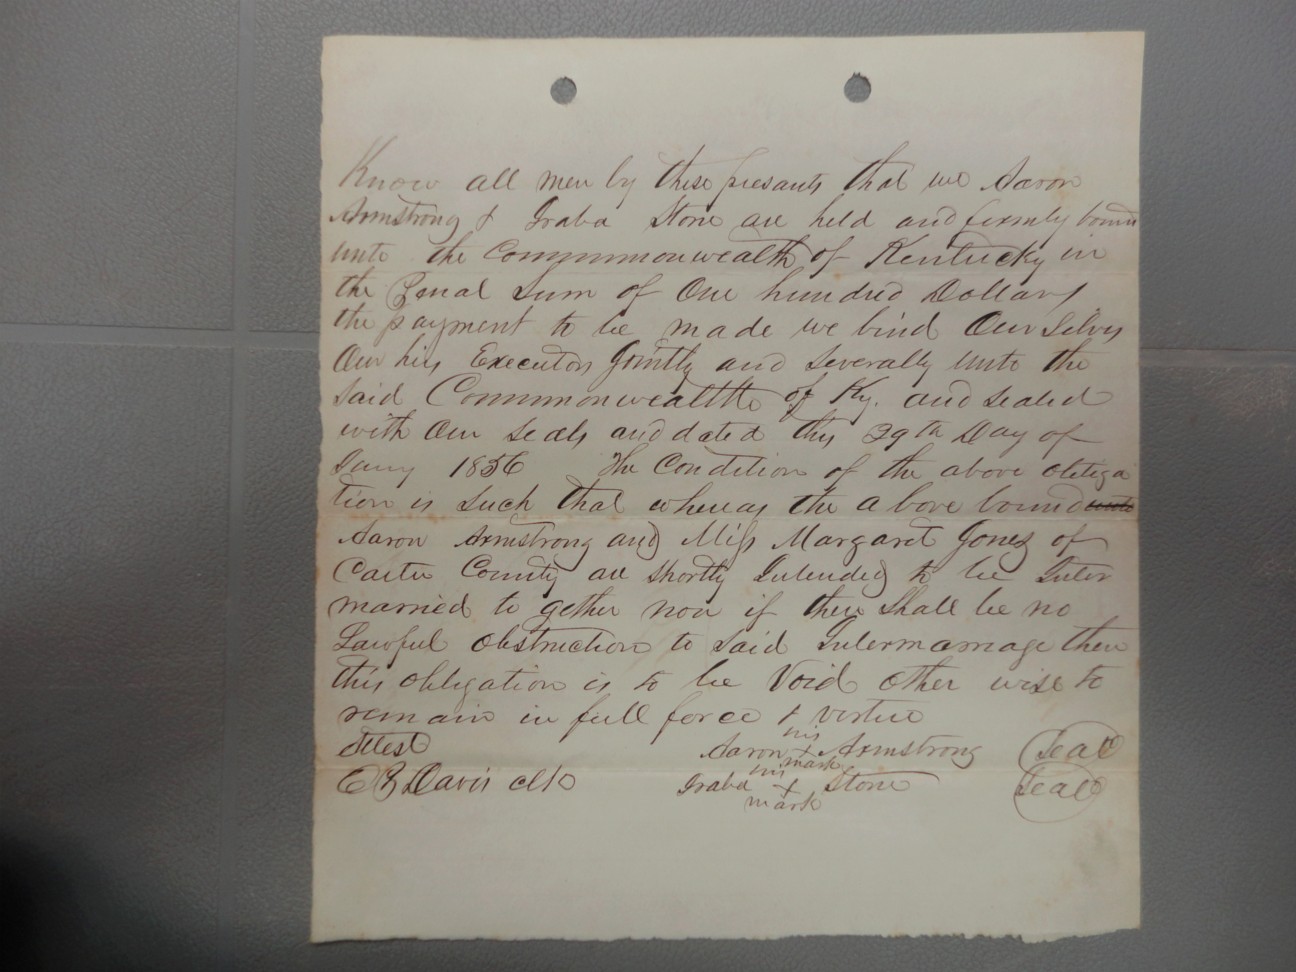 Know all men by these presants that we Aaron
Armstrong & Iraba Stone are held and firmly bound
unto the Commmonwealth of Kentucky in
the Penal Sum of One hundred Dollars
the payment to be made we bind Our Selves
Our hirs Executors Jointly and Severally unto the
Said Commmonwealth of Ky. and sealed
with Our seals and dated this 29th Day of
Jany 1856 The Condition of the above obliga
tion is Such that whereas the above bound
Aaron Armstrong and Miss Margaret Jones of
Carter County are shortly Intended to be Inter
married to gether now if there Shall be no
Lawful obstruction to Said Intermarriage then
this obligation is to be Void other wise to
remain in full force & virtue
Attest Aaron his x mark Armstrong (Seal)
E B Davis clk Iraba his x mark Stone (Seal)